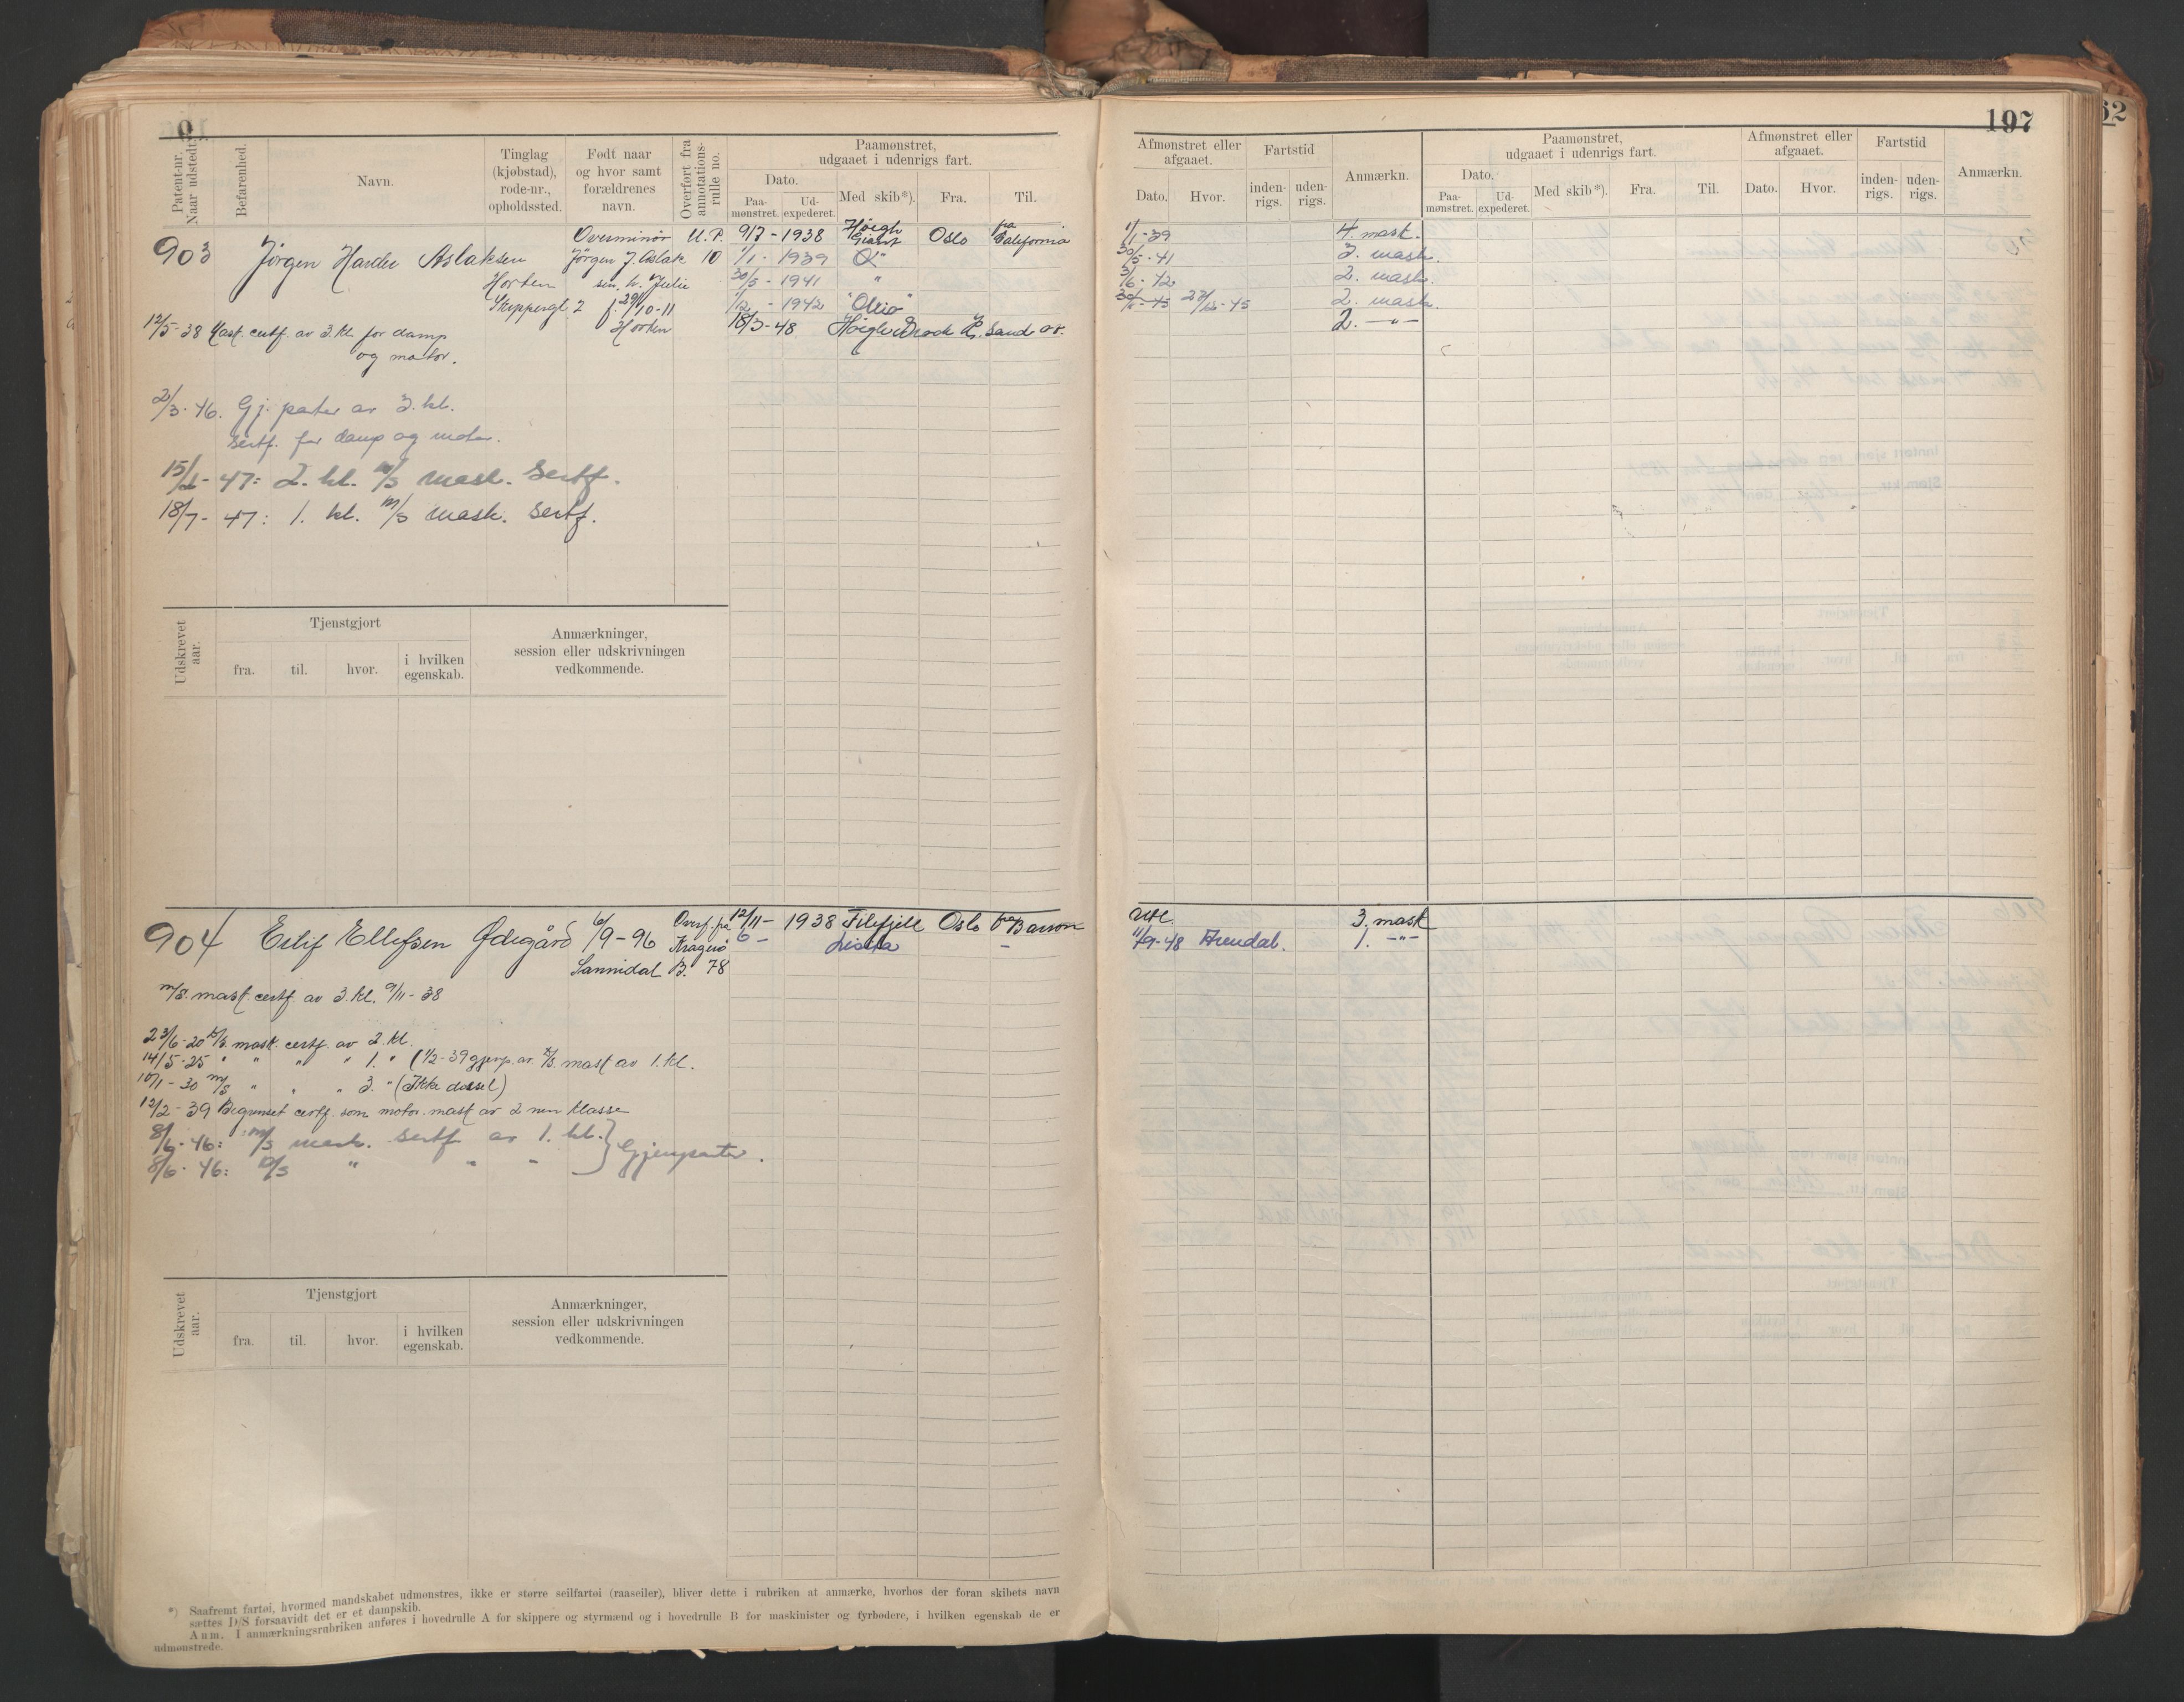 197
62
Patent-nr. Naar udstedt
Befarenhed.
Navn.
Tinglag (kjøbstad), rode-nr., opholdssted.
Født naar og hvor samt forældrenes navn.
Overført fra annotations-rulle no.
Paamønstret, udgaaet i udenrigs fart.
Dato.
Paa-mønstret.
Ud-expederet.
Med skib*).
Fra.
Til.
Afmønstret eller afgaaet.
Dato.
Hvor.
Fartstid
inden-rigs.
uden-rigs.
Anmærkn.
Paamønstret, udgaaet i udenrigs fart.
Dato.
Paa-mønstret.
Ud-expederet.
Med skib*).
Fra.
Til.
Afmønstret eller afgaaet.
Dato.
Hvor.
Fartstid
inden-rigs.
uden-rigs.
Anmærkn.
903 Jørgen Harder Aslaksen
Horten
Skippergt. 2
Overminør
Jörgen J. Aslak
sen, h. Julie
f. 29/10-11
Horten
U.P.
10
9/7 - 1938 Höegh Giant Oslo fra California
1/1 - 1939 "
30/5 - 1941 "
1/12 - 1942 "
18/3-48 Höegh Kr. sand
1/1-39 4. mask.
30/5-41 3. mask.
3/6-42 2. mask.
-45 2. mask.
2. -"-
12/5-38 Mask. certf. av 3. kl. for damp
og motor.
2/3-46. Gj. parter av 3. kl.
sertf. for damp og motor.
15/1-47: 2. kl. m/s mask. sertf.
18/7-47: 1. kl. m/s mask. sertf.
Udskrevet aar.
Tjenstgjort
fra.
til.
hvor.
i hvilken egenskab.
Anmærkninger,
session eller udskrivningen
vedkommende.
904 Eilif Ellefsen Ødegård 6/9-96
Sannidal
Overf. fra
Kragerø
B. 78
12/11 - 1938 Filefjell Oslo fra
6 - Lista -
3. mask
11/9-48 Arendal. 1. -"-
m/s. mask. certf. av 3. kl. 9/11-38
23/6-20 D/S. mask. certf. av 2. kl.
14/5-25 " " " " 1. " (1/2-39 gjenp. av D/s. mask av 1. kl.
10/1-30 m/s " " " 3. " (Ikke diesel)
12/2-39 Begrenset certf. som motor.mask av 2 nen klasse
8/6-46: m/s mask. sertf. av 1. kl. } Gjenparter.
8/6-46: D/s " " "
Udskrevet aar.
Tjenstgjort
fra.
til.
hvor.
i hvilken egenskab.
Anmærkninger,
session eller udskrivningen
vedkommende.
*) Saafremt fartøi, hvormed mandskabet udmønstres, ikke er større seilfartøi (raaseiler), bliver dette i rubriken at anmærke, hvorhos der foran skibets navn
sættes D/S forsaavidt det er et dampskib.
Anm. I anmærkningsrubriken anføres i hovedrulle A for skippere og styrmænd og i hovedrulle B for maskinister og fyrbødere, i hvilken egenskab de er
udmønstrede.